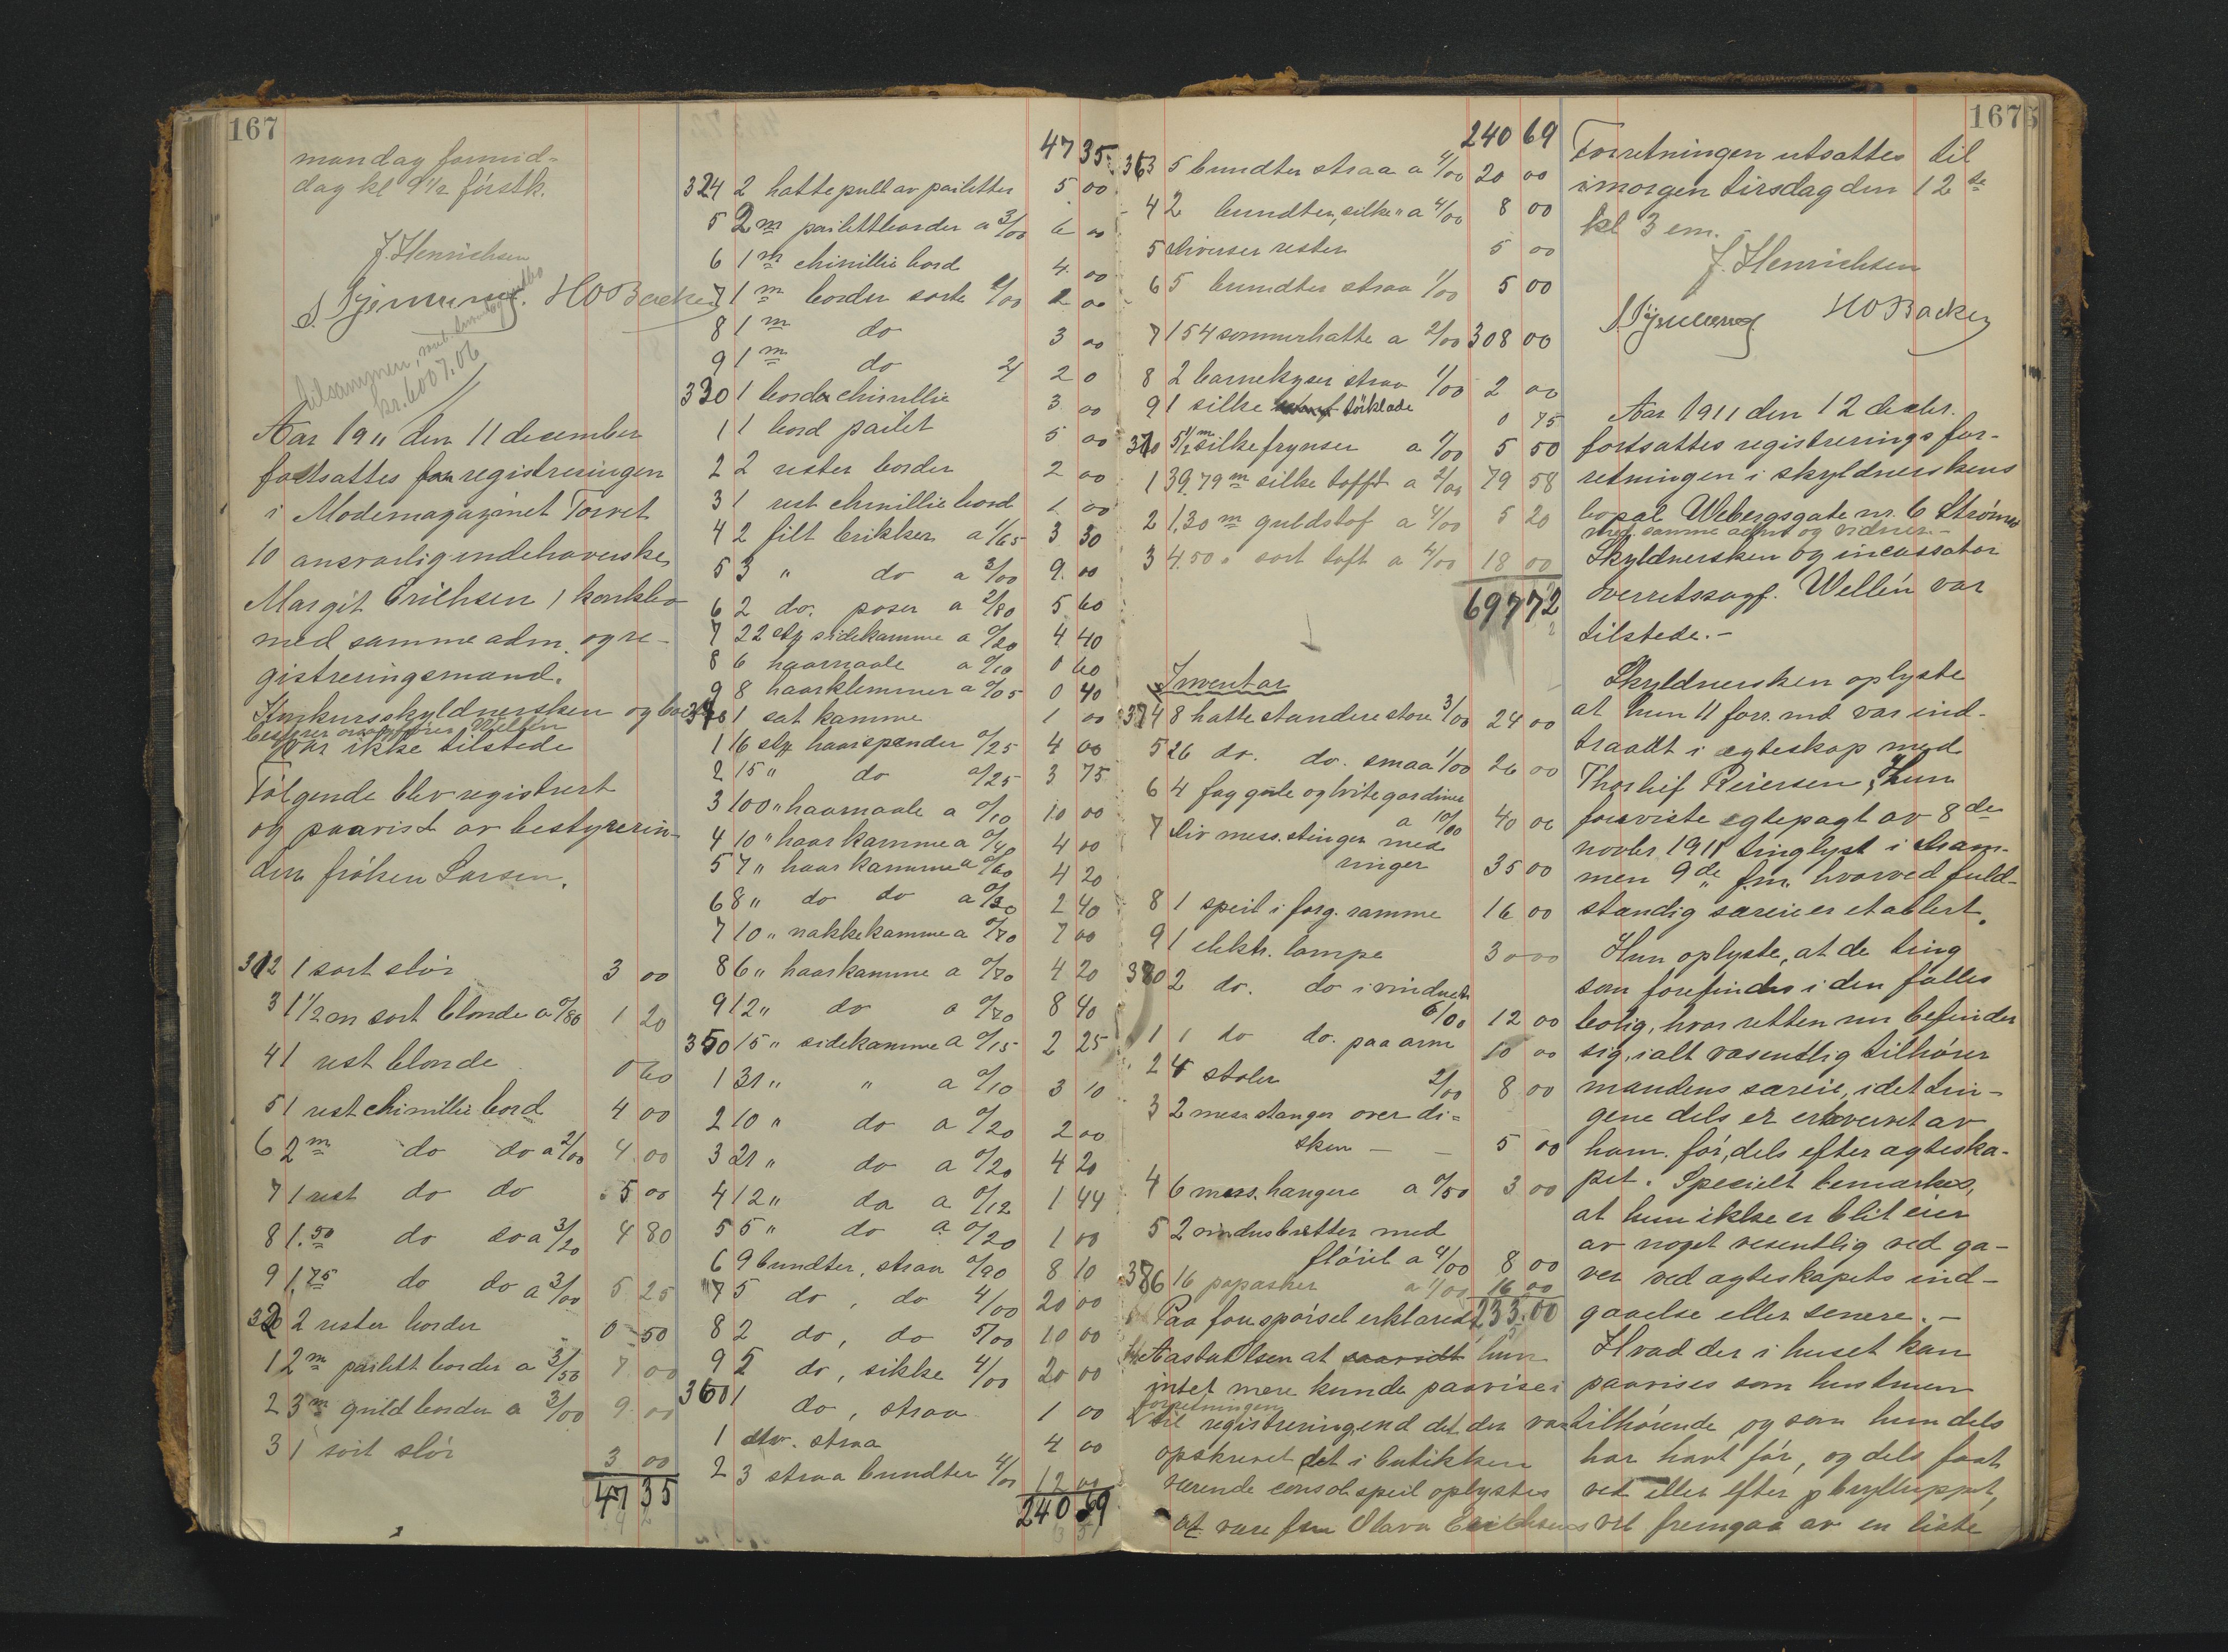 167
mandag formid-
dag kl 9 1/2 förstk.
J. Henrichsen
HO Backer
tilsammen,
kr. 6007.06
Aar 1911 den 11 december
fortsattes registreringen
i Modemagazinet Torvet
10 ansvarlig indehaverske
Margit Erichsen's konkbo
med samme adm. og re-
gistreringsmand.
Konkursskyldnersken og bo
bestyrer Wellén
var ikke tilstede
Følgende blev registrert
og paavist av bestyrerin-
den fröken Larsen.
312 1 sort slör 3 00
3 1 1/2 m sort blonde a 0/80 1 20
4 1 rest blonde 0 60
5 1 rest chinillie bord 4 00
6 2 m do do a 2/00 4 00
7 1 rest do do 5 00
8 1.50 do do a 3/20 4 80
9 1.75 do do a 3/00 5 25
320 2 rester border 0 50
1 2 m pailett border a 3/50 7 00
2 3 m guld border a 3/00 9 00
3 1 sort slör 3 00
47 35
47 35
324 2 hattepull av pailetter 5 00
5 2 m pailettborder a 3/00 6 00
6 1 m chinillie bord 4 00
7 1 m border sorte 2/00 2 00
8 1 m do 3 00
9 1 m do 2/ 2 0
330 1 border chinillie 3 00
1 1 bord pailet 5 00
2 2 rester border 2 00
3 1 rest chinillie bord 1 00
4 2 filt brikker a 1/65 3 30
5 3 " do a 3/00 9 00
6 2 do. poser a 2/80 5 60
7 22 stk sidekamme a 0/20 4 40
8 6 haarnaale a 0/10 0 60
9 8 haarklemmer a 0/05 0 40
340 1 sat kamme 1 00
1 16 stk haarspænder 0/25 4 00
2 15 " do 0/25 3 75
3 100 " haarnaale a 0/10 10 00
4 10 " haarkamme a 0/40 4 00
5 7 " haarkamme a 0/60 4 20
6 8 " do do a 0/30 2 40
7 10 " nakkekamme a 0/70 7 00
8 6 " haarkamme a 0/70 4 20
9 12 " do a 0/70 8 40
350 15 " sidekamme a 0/15 2 25
1 31 " " a 0/10 3 10
2 10 " do a 0/20 2 00
3 21 " do a 0/20 4 20
4 12 " do a 0/12 1 44
5 5 " do a 0/20 1 00
6 9 bundter, straa 0/90 8 10
7 5 do, do 4/00 20 00
8 2 do, do 5/00 10 00
9 5 do, silke 4/00 20 00
360 1 do, straa 1 00
1 div. straa 4 00
2 3 straa bundter 4/00 12 00
240 69
240 69
363 5 bundter straa a 4/00 20 00
4 2 bundter, silke " a 4/00 8 00
5 diverser rester 5 00
6 5 bundter straa 1/00 5 00
7 154 sommerhatte a 2/00 308 00
8 2 barnekyser straa 1/00 2 00
9 1 silke törklæde 0 75
370 5 1/2 m silkefrynser a 1/00 5 50
1 39.79 m silke tafft a 2/00 79 58
2 1.30 m guldstof a 4/00 5 20
3 4.50 " sort taft a 4/00 18 00
697 72
Inventar
374 8 hatte standere store 3/00 24 00
5 26 do. do. smaa 1/00 26 00
6 4 fag gule og hvite gardiner
a 10/00 40 00
7 Div mess. stinger med
ringer 35 00
8 1 speil i forg. ramme 16 00
9 1 elektr. lampe 30 00
380 2 do. do i vinduet
6/00 12 00
1 1 do do. paa arm 10 00
2 4 stoler 2/00 8 00
3 2 mess stanger over di-
sken — — 5 00
4 6 mess. hangere a 0/50 3 00
5 2 vindusbretter med
flöiel a 4/00 8 00
386 16 papæsker a 1/00 16 00
233.00
Paa forespörsel erklærede
hun
intet mere kunde paavise i
forretningen
til registrering end det der var
opskrevet det i butikken
værende consol speil oplystes
at være fru Olava Erichsens
167
Forretningen utsattes til
imorgen tirsdag den 12te
kl 3 em.
J. Henrichsen
HO Backer
Aar 1911 den 12 decbr.
fortsattes registreringsfor-
retningen i skyldnerskens
bopæl Webergsgate nr. 6 Strømsø
med samme adm og vidner.—
Skyldnersken og incassator
overretssagf. Wellén var
tilstede.—
Skyldnersken oplyste
at hun 11 forr. md var ind-
traadt i ægteskap med
Thorleif Reiersen, Hun
foreviste egtepagt av 8de
novbr 1911 tinglyst i Dram-
men 9de f.m. hvorved fuld-
stændig særeie er etablert.
Hun oplyste, at de ting
som forefindes i den fælles
bolig, hvor retten nu befinder
sig, i alt væsentlig tilhører
mandens særeie, idet tin-
gene dels er erhvervet av
ham för, dels efter ægteska-
pet. Specielt bemærkes,
at hun ikke er blit eier
av noget vesentlig ved ga-
ver ved ægteskapets ind-
gaaelse eller senere.—
Hvad der i huset kan
paavises som hustruen
tilhörende og som hun dels
har havt för, og dels faat
ved eller efter bryllupput,
vil fremgaa av en liste